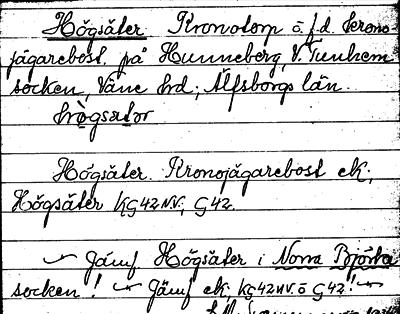 Högsäter. Kronotorp o. f.d. krono-
jägarebost. på Hunneberg, V. Tunhem
socken, Väne hd, Älfsborgs län.
Högsäter. Kronojägarebost ek,
Högsäter KG42NV, G42.
Jämf Högsäter i Norra Björke
socken! Jämf ek. KG42NV o G42!